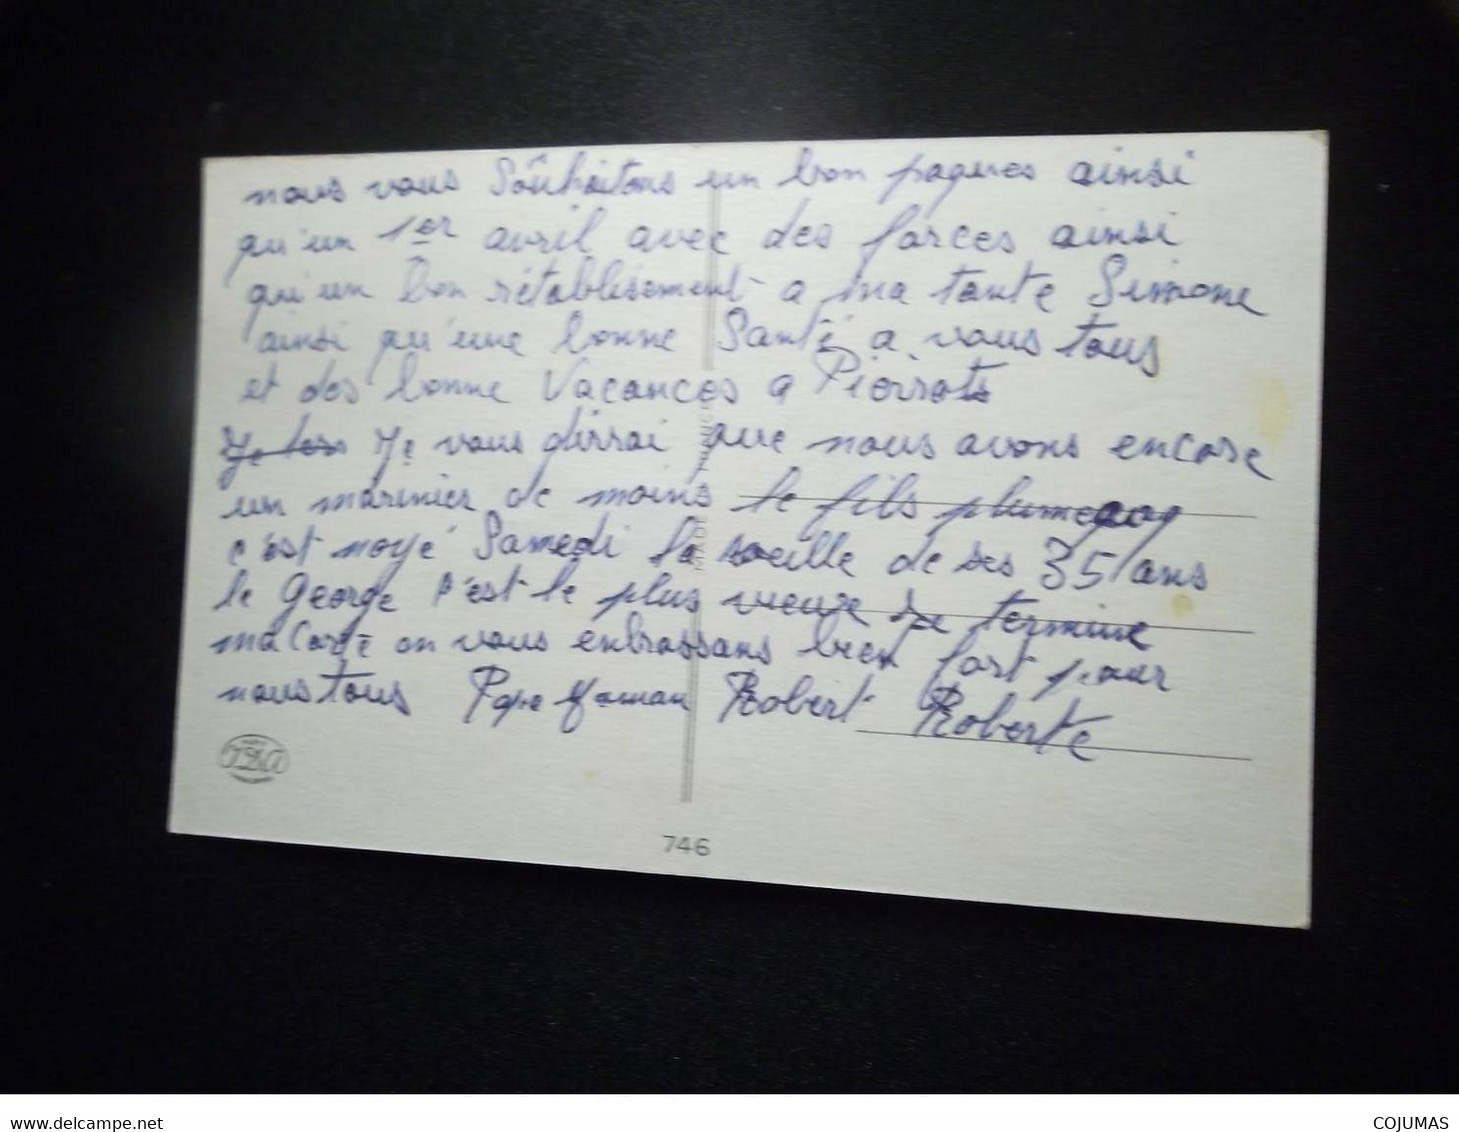 nous vous Souhaitons un bon paques ainsi
qu'un 1er avril avec des farces ainsi
qu'un bon rétablisement a ma tante Simone
ainsi qu'une bonne Santé a vous tous
et des bonne Vacances a Pierrots
Je Je vous dirrai que nous avons encore
un marinier de moins le fils
c'est noyé Samedi la veille de ses 35 ans
le George s'est le plus vieux Je termine
ma carte on vous enbrassans bien fort pour
nous tous Pape Maman Robert Roberte
746
www.delcampe.net
COJUMAS